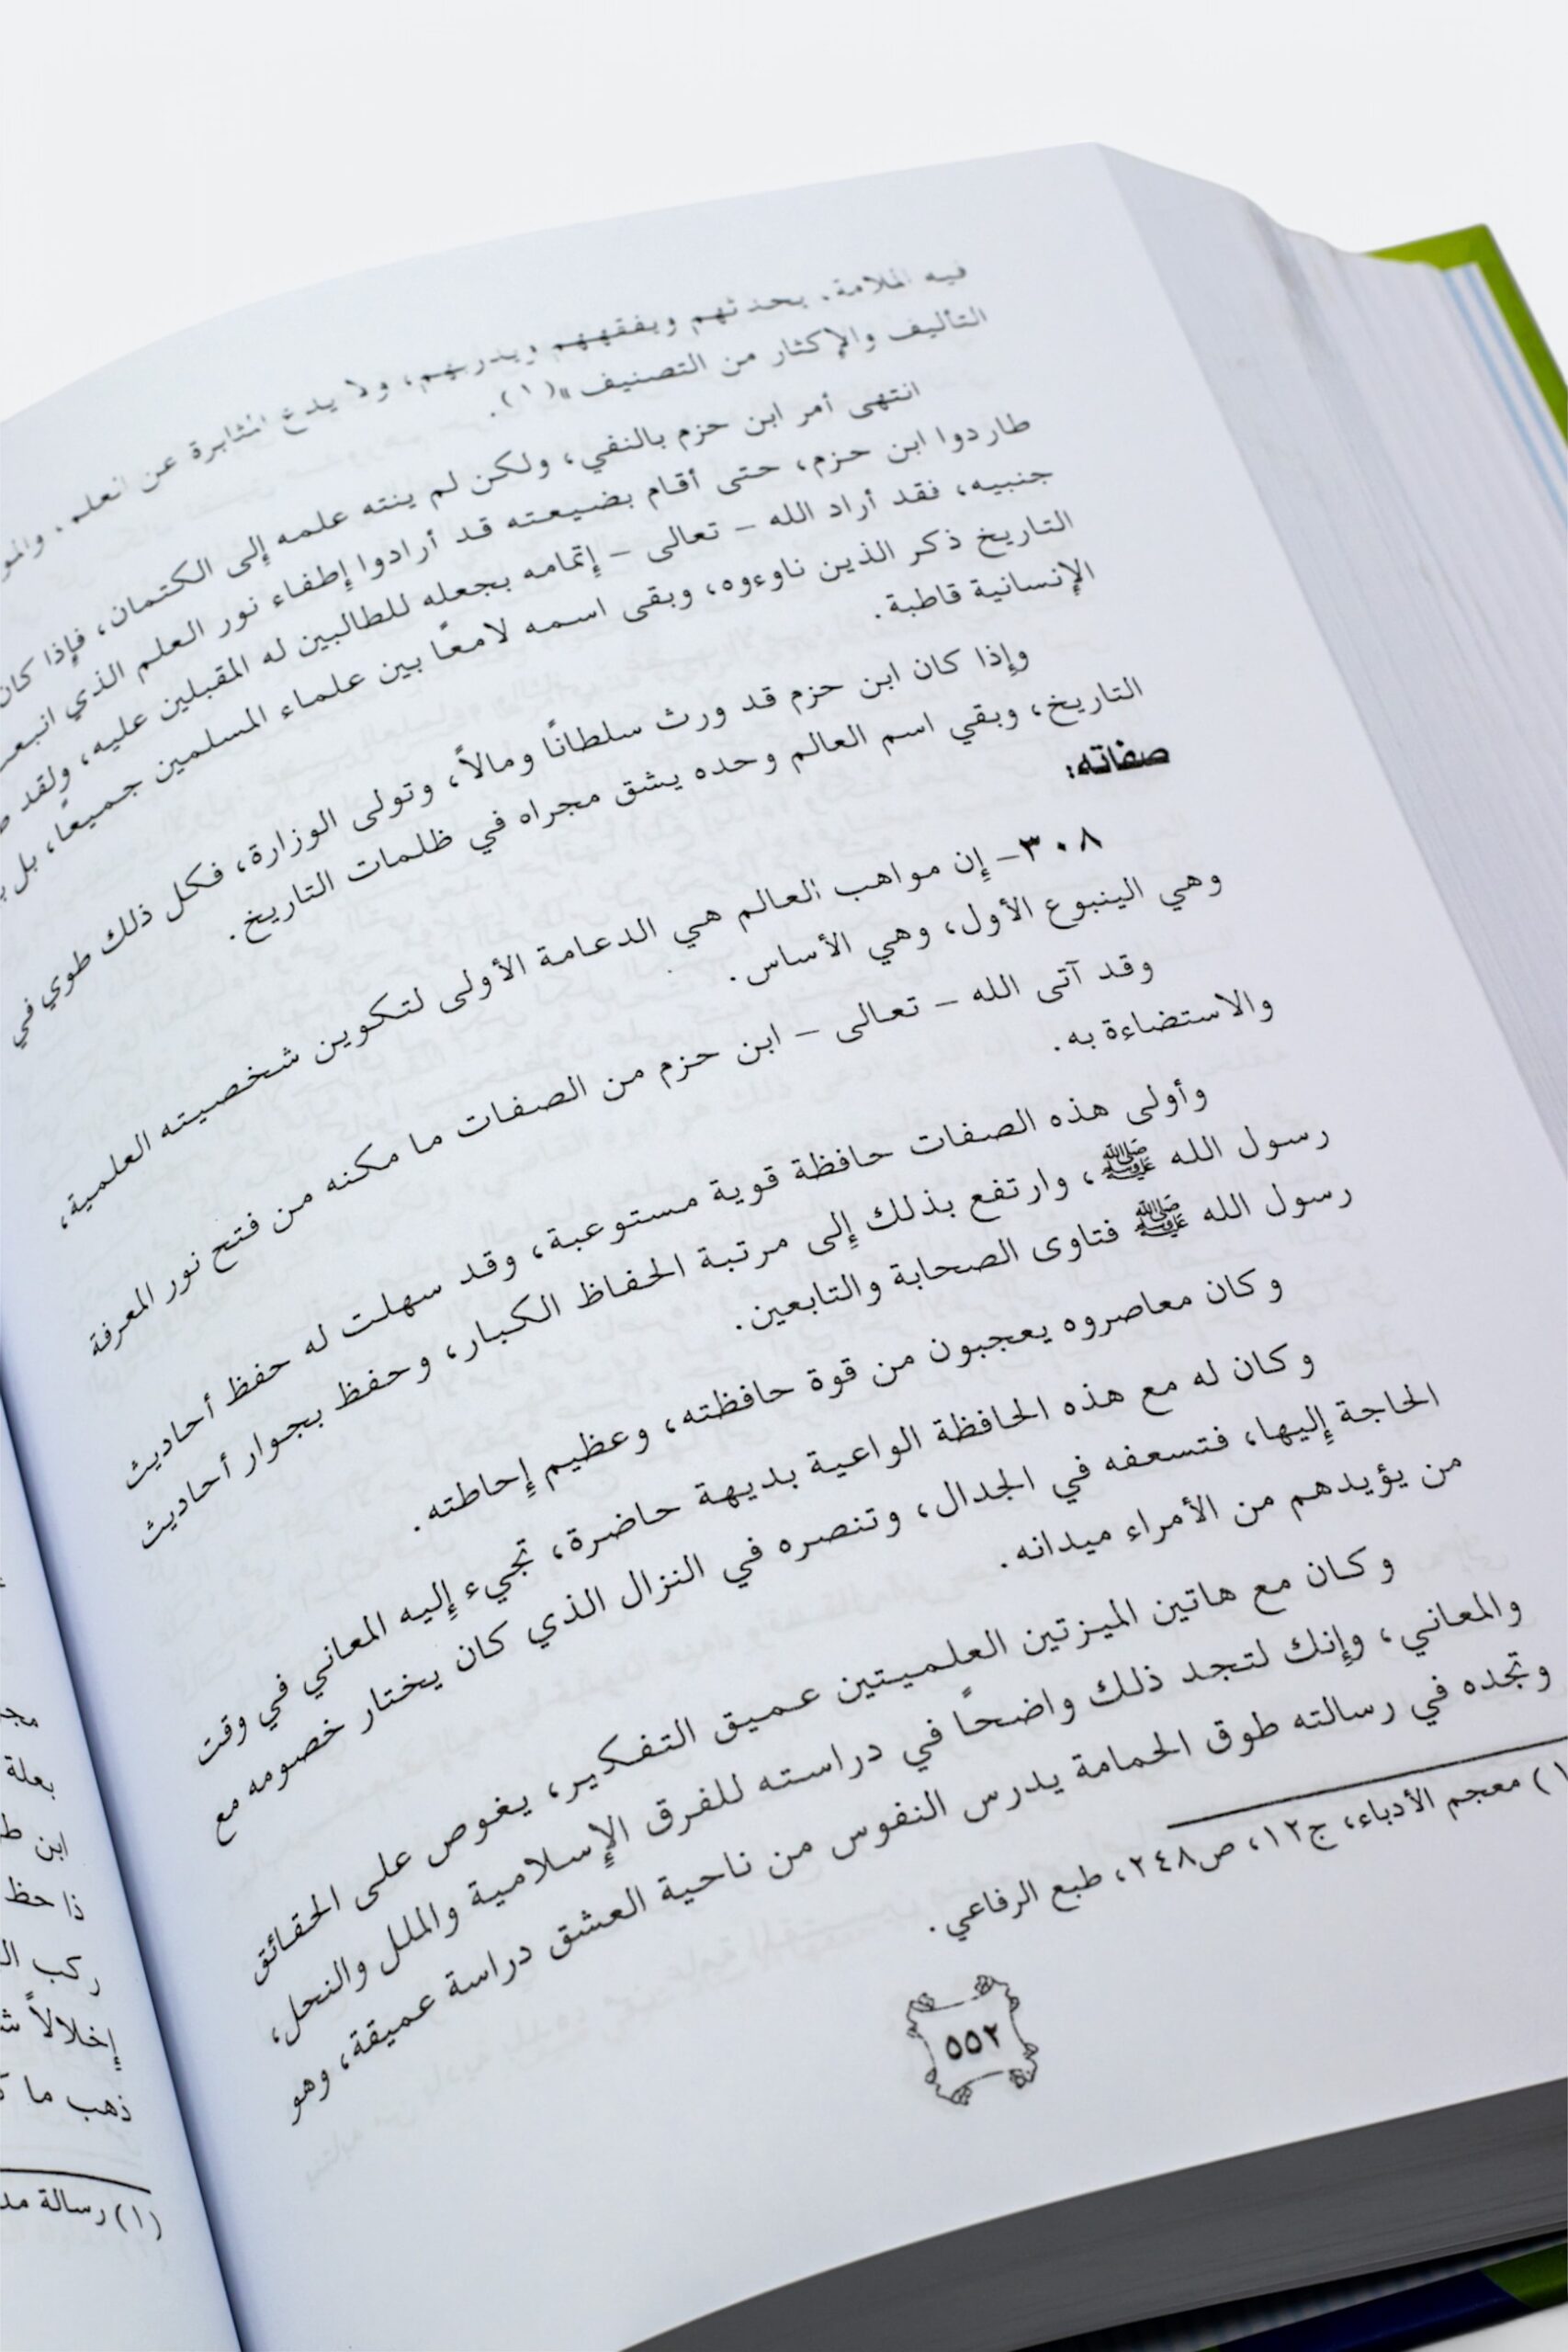 فيه الملامة. يحدثهم ويفقههم ويدربهم، ولا يدع المثابرة عن العلم،
التأليف والإكثار من التصنيف»(١).
انتهى أمر ابن حزم بالنفي، ولكن لم ينته علمه إلى الكتمان، فإذا كان
طاردوا ابن حزم، حتى أقام بضيعته قد أرادوا إطفاء نور العلم الذي
جنبيه، فقد أراد الله – تعالى – إتمامه بجعله للطالبين له المقبلين عليه، ولقد
التاريخ ذكر الذين ناوءوه، وبقى اسمه لامعًا بين علماء المسلمين جميعًا، بل
الإنسانية قاطبة.
وإذا كان ابن حزم قد ورث سلطانًا ومالاً، وتولى الوزارة، فكل ذلك طوي في
التاريخ، وبقي اسم العالم وحده يشق مجراه في ظلمات التاريخ.
صفاته:
٣٠٨- إن مواهب العالم هي الدعامة الأولى لتكوين شخصيته العلمية،
وهي الينبوع الأول، وهي الأساس.
وقد آتى الله – تعالى – ابن حزم من الصفات ما مكنه من فتح نور المعرفة
والاستضاءة به.
وأولى هذه الصفات حافظة قوية مستوعبة، وقد سهلت له حفظ أحاديث
رسول الله ﷺ، وارتفع بذلك إلى مرتبة الحفاظ الكبار، وحفظ بجوار أحاديث
رسول الله ﷺ فتاوى الصحابة والتابعين.
وكان معاصروه يعجبون من قوة حافظته، وعظيم إحاطته.
وكان له مع هذه الحافظة الواعية بديهة حاضرة، تجيء إليه المعاني في وقت
الحاجة إليها، فتسعفه في الجدال، وتنصره في النزال الذي كان يختار خصومه مع
من يؤيدهم من الأمراء ميدانه.
وكان مع هاتين الميزتين العلميتين عميق التفكير، يغوص على الحقائق
والمعاني، وإنك لتجد ذلك واضحًا في دراسته للفرق الإسلامية والملل والنحل،
وتجده في رسالته طوق الحمامة يدرس النفوس من ناحية العشق دراسة عميقة، وهو
١) معجم الأدباء، ج١٢، ص٢٤٨، طبع الرفاعي.
٥٥٢
بعلة
ابن
ذا حظ
ركب
إخلالاً
ذهب ما
(١) رسالة